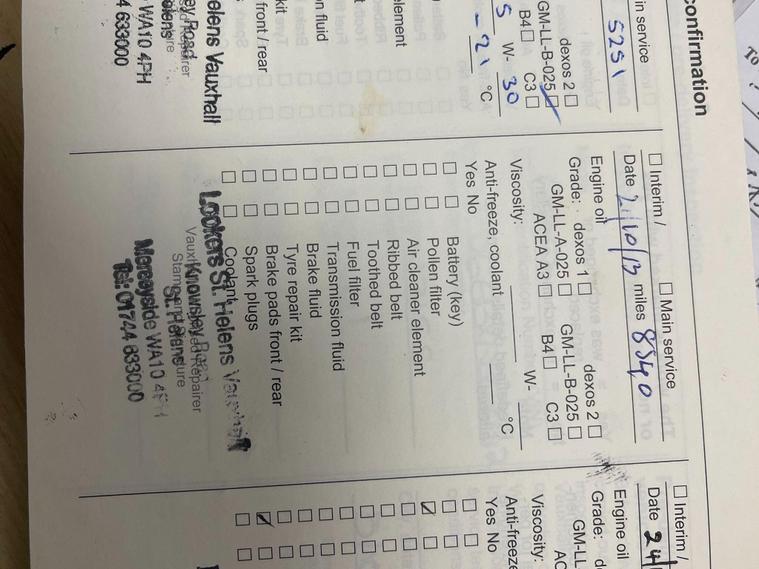 confirmation
in service
5251
dexos 2
GM-LL-B-025
B4 C3
5 W- 30
-21 °C
element
n fluid
front / rear
kit
elens Vauxhall
WA10 4PH
4 633000
Interim / Main service
Date 21/10/13 miles 8540
Engine oil
Grade: dexos 1 dexos 2
GM-LL-A-025 GM-LL-B-025
ACEA A3 B4 C3
Viscosity: W-
Anti-freeze, coolant °C
Yes No
Battery (key)
Pollen filter
Air cleaner element
Ribbed belt
Toothed belt
Fuel filter
Transmission fluid
Brake fluid
Tyre repair kit
Brake pads front / rear
Spark plugs
Coolant
Lookers St. Helens Vauxhall
Knowsley Road
St. Helens
Merseyside WA10 4PH
Tel: 01744 633000
Interim /
Date 24/
Engine oil
Grade: d
GM-LL
AC
Viscosity:
Anti-freeze
Yes No